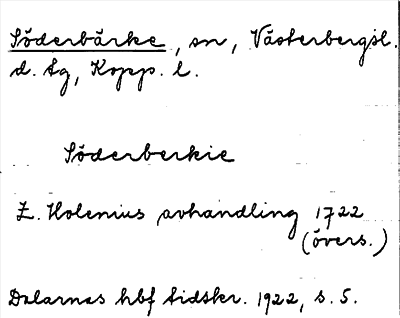 Söderbärke, sn, Västerbergsl.
d. tg, Kopp. l.
Söderberkie
E. Holenius avhandling 1722
(övers.)
Dalarnas hbf tidskr. 1922, s. 5.